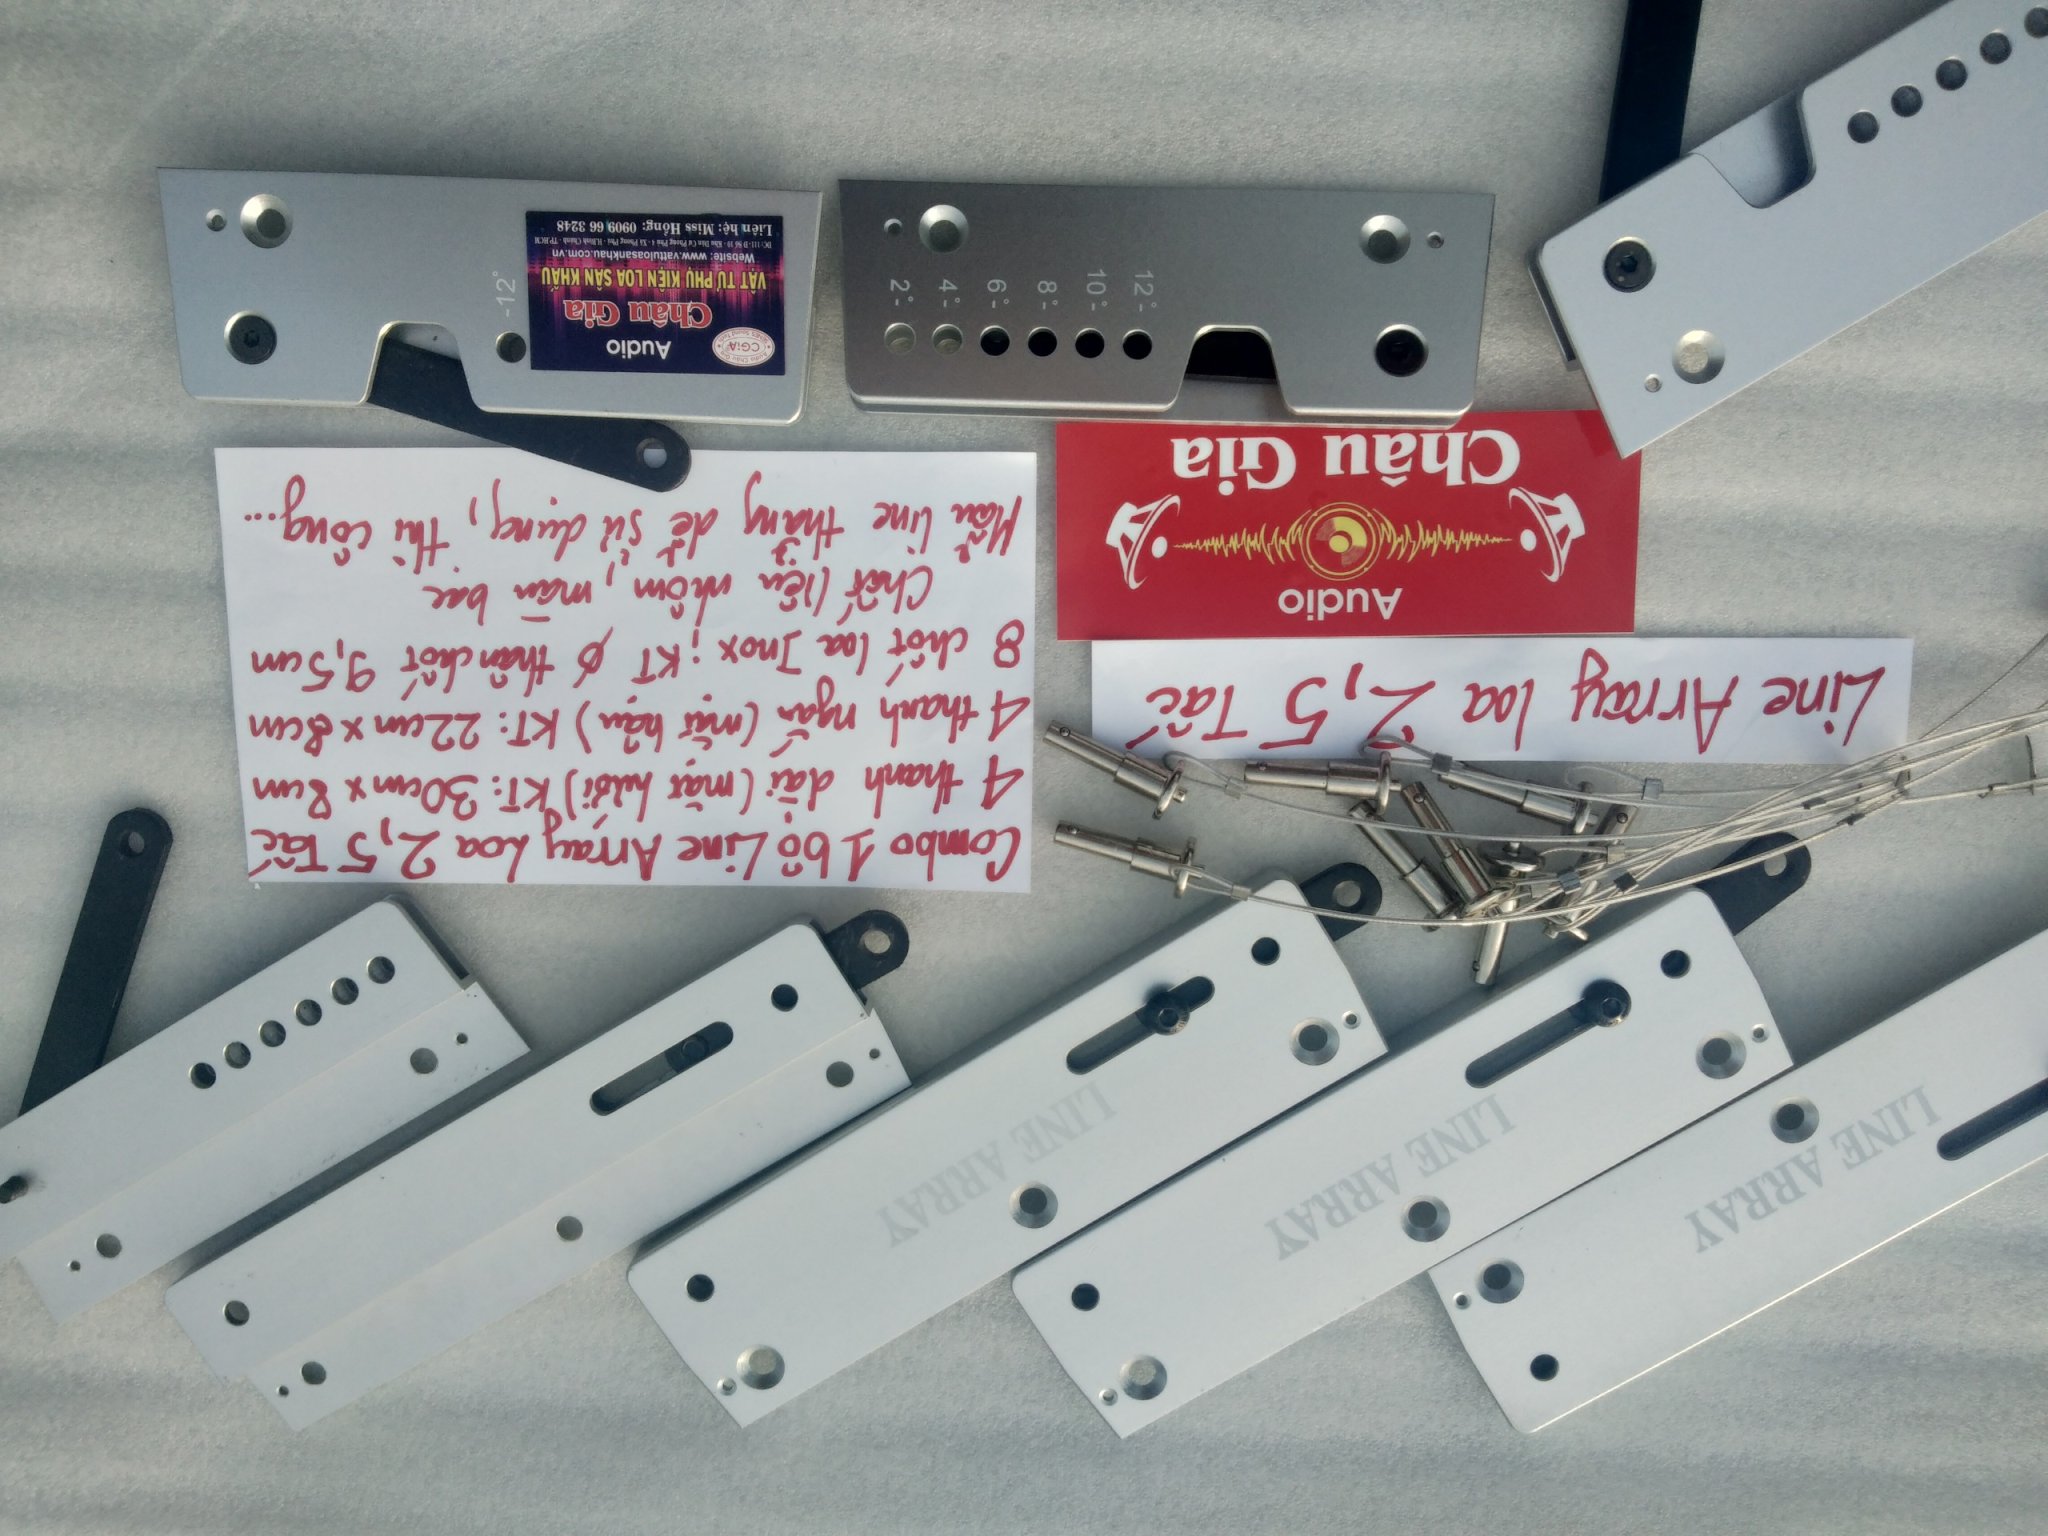 Combo 1 bộ Line Array Loa 2,5 Tấc
4 thanh dài (mặt lưới) KT: 30cm x 8cm
4 thanh ngắn (mặt hậu) KT: 22cm x 8cm
8 chốt loa Inox; KT Ø thân chốt 9,5cm
Chất liệu nhôm, màu bạc
Mẫu line thẳng dễ sử dụng, thi công...
Line Array loa 2,5 Tấc
Audio
Châu Gia
Audio
Châu Gia
VẬT TƯ PHỤ KIỆN LOA SÂN KHẤU
Website: www.vattuloasankhau.com.vn
Liên hệ: Miss Hồng: 0909 66 3248
CGiA
-12°
2°-
4°-
6°-
8°-
10°-
12°-
LINE ARRAY
LINE ARRAY
LINE ARRAY